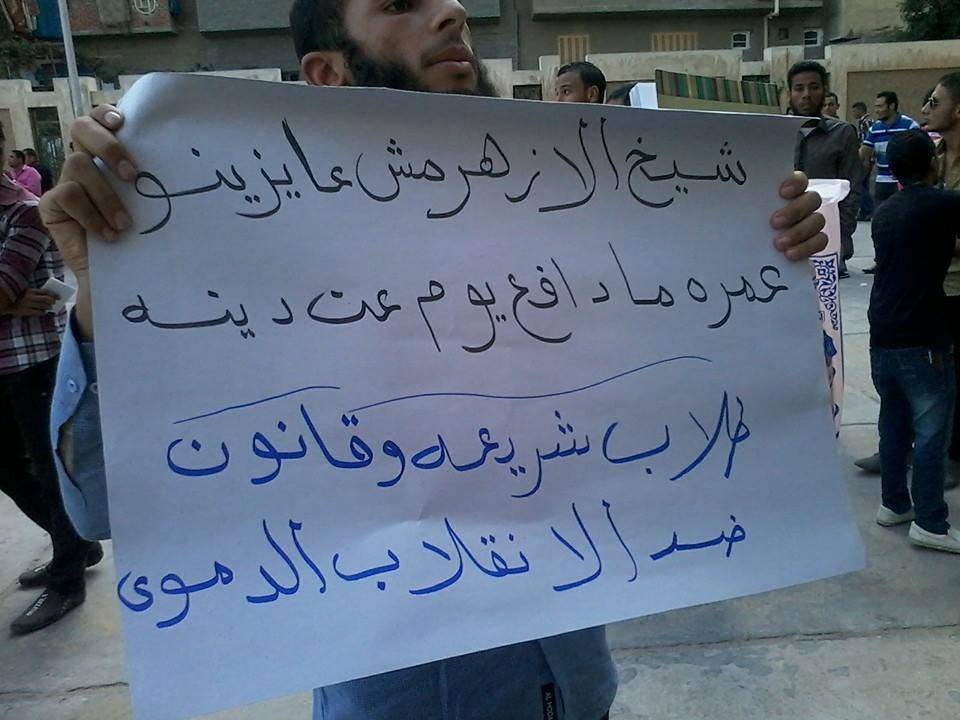 شيخ الازهر مش عايزينو
عمره ما دافع يوم عن دينه
طلاب شريعه وقانون
ضد الانقلاب الدموى